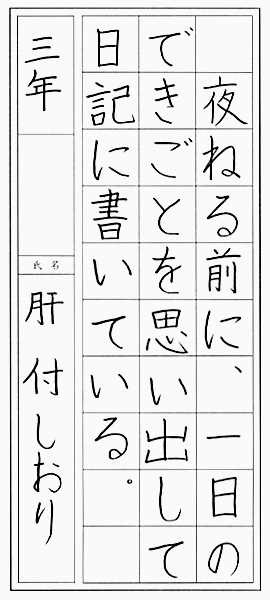 夜ねる前に、一日の
できごとを思い出して
日記に書いている。
三年
氏名
肝付しおり